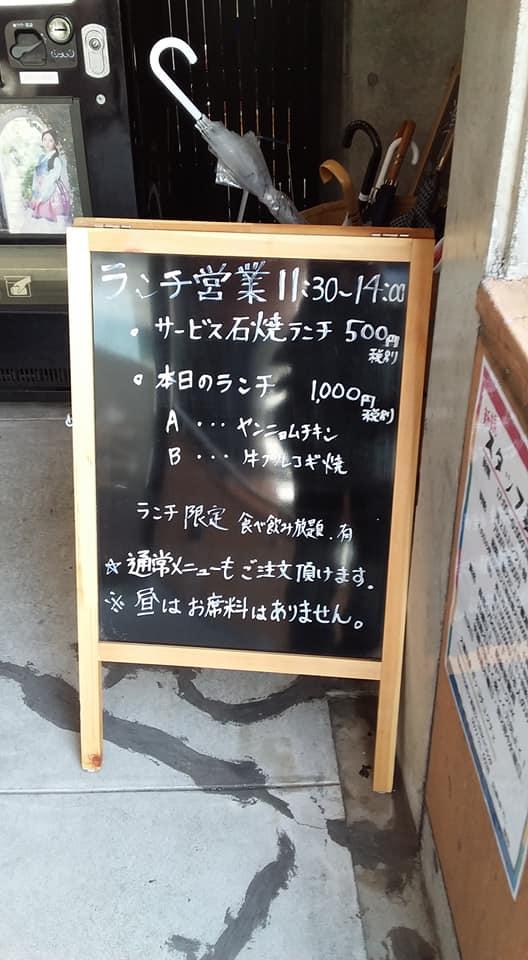 ランチ営業 11:30~14:00
• サービス石焼ランチ 500円
税別
• 本日のランチ 1,000円
税別
A ・・・ ヤンニョムチキン
B ・・・ 牛プルコギ焼
ランチ限定 食べ飲み放題.有
☆ 通常メニューもご注文頂けます.
※ 昼はお席料はありません。